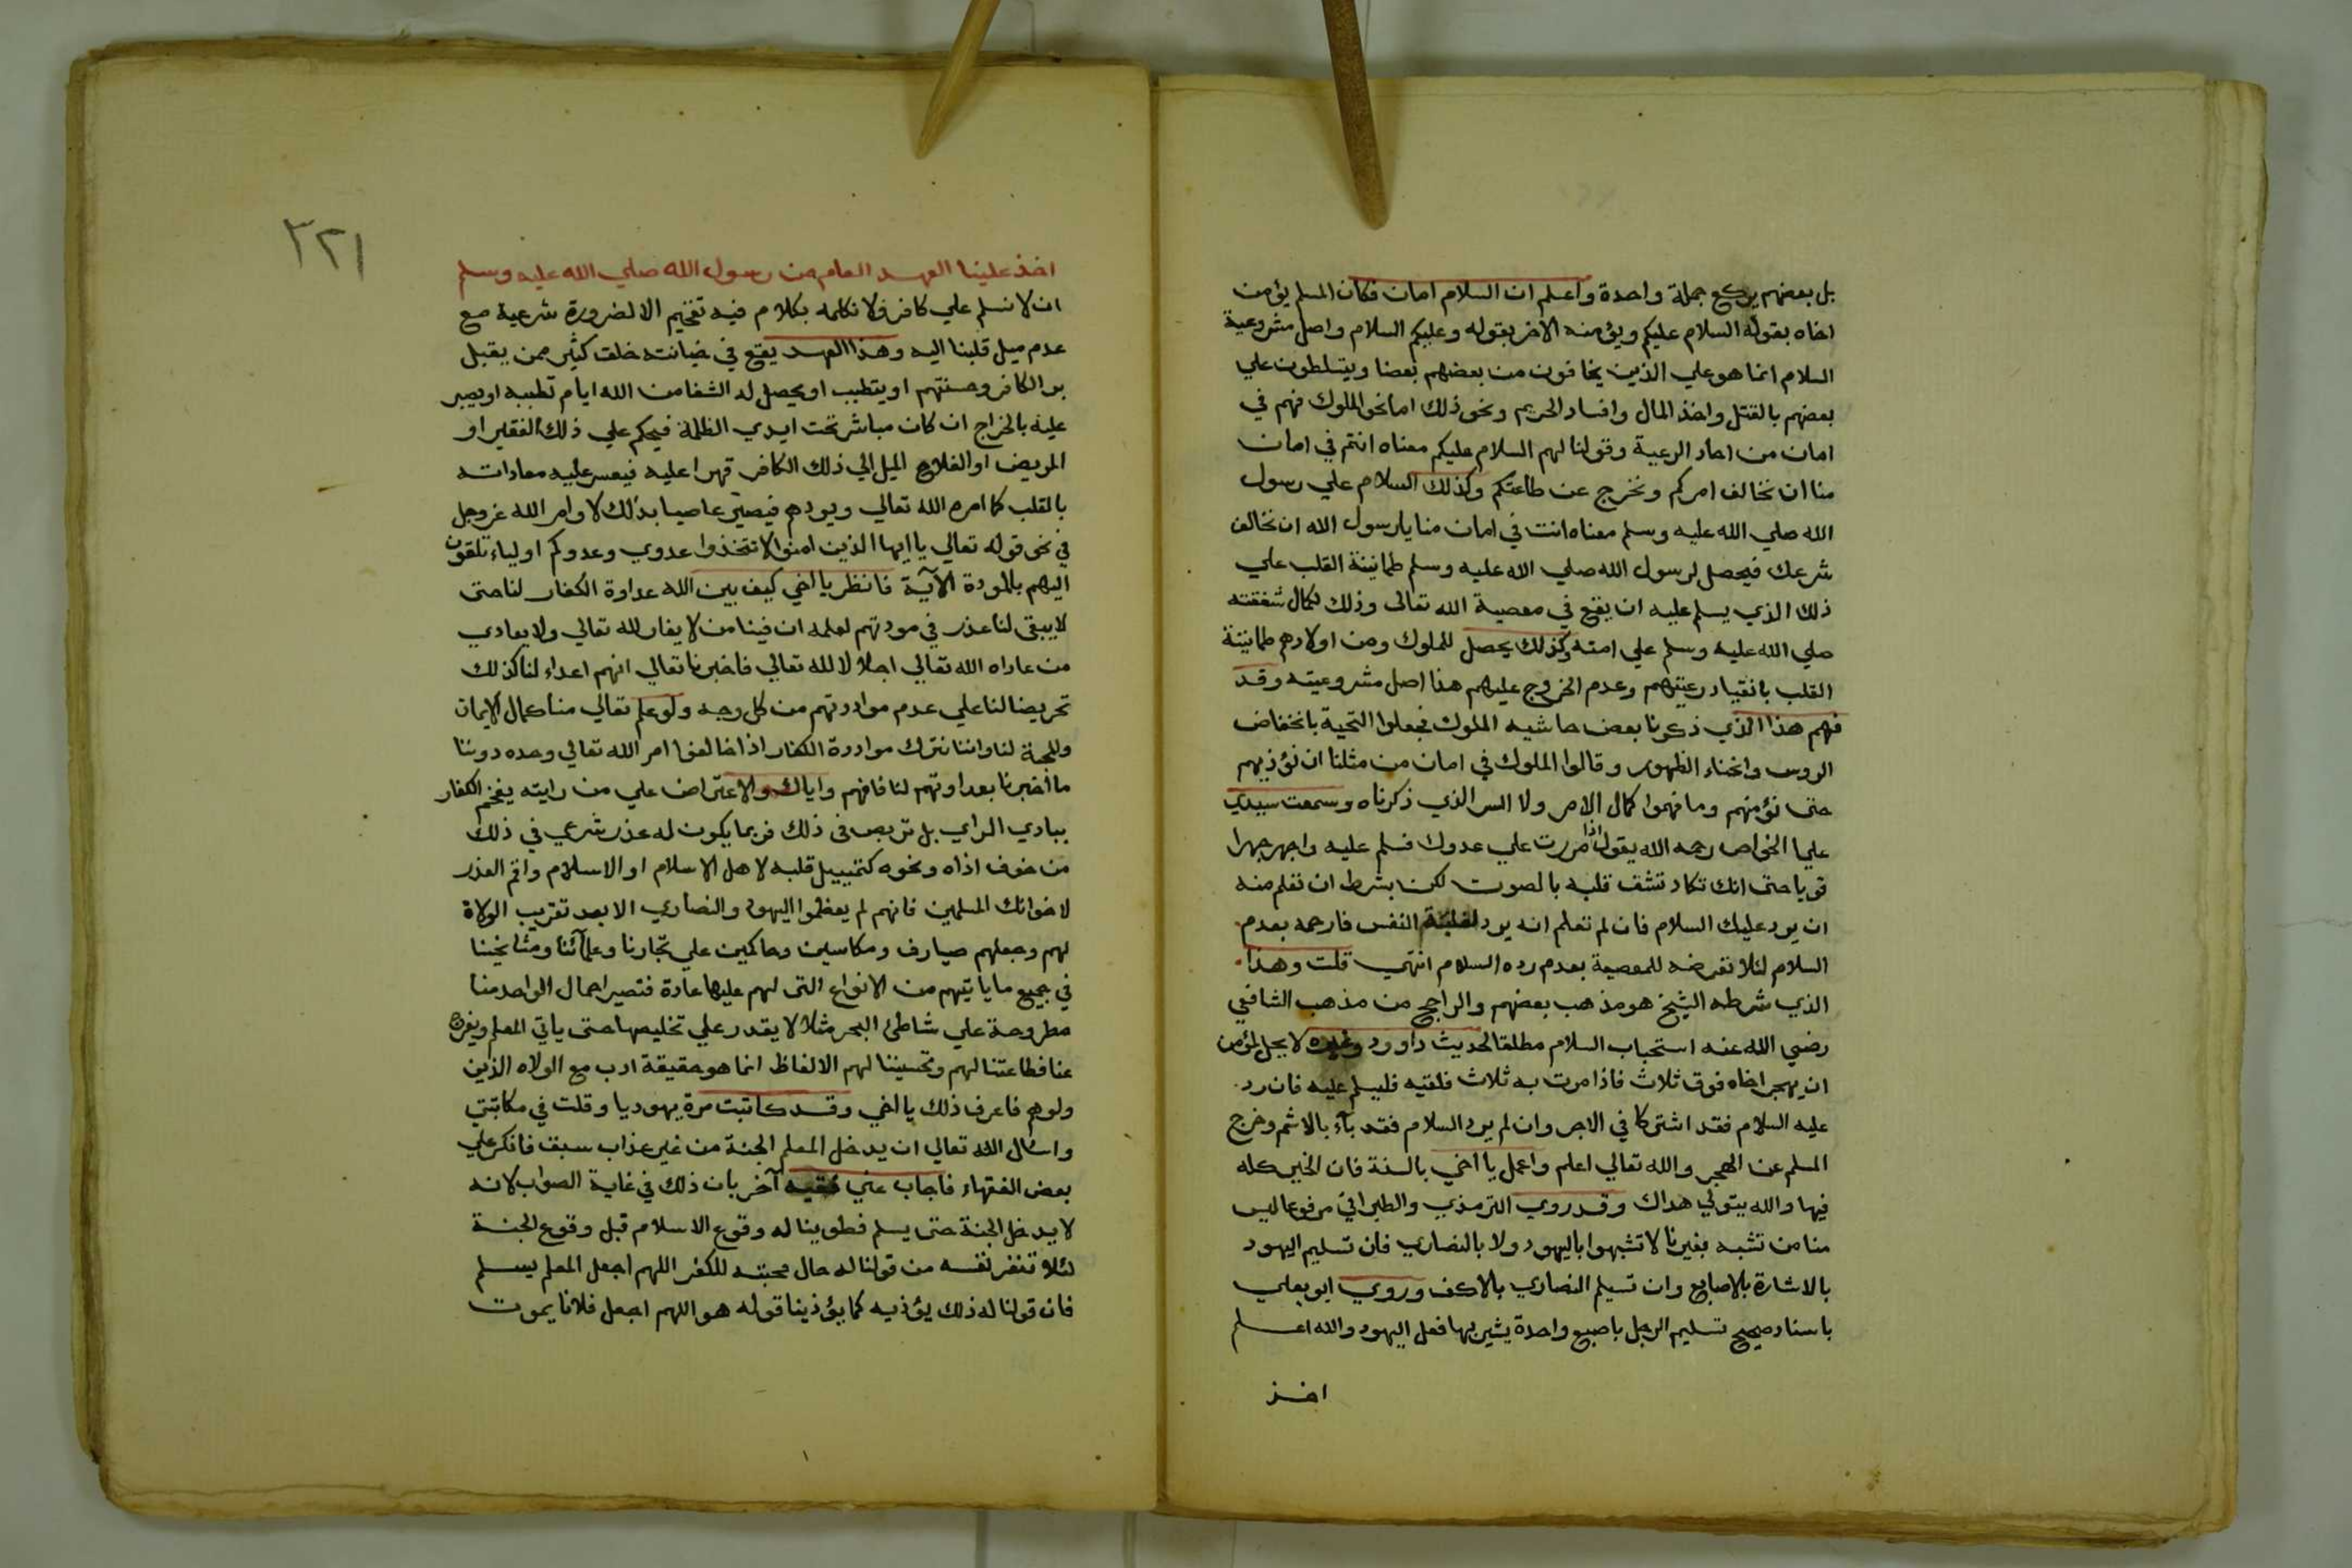 بل بعضهم يركع جملة واحدة واعلم ان السلام امان فكان المسلم يؤمن
اخاه بقوله السلام عليكم ويؤمنه الاخر بقوله وعليكم السلام واصل مشروعية
السلام انما هو علي الذين يخافون من بعضهم بعضا ويتسلطون علي
بعضهم بالقتل واخذ المال وافساد الحريم ونحو ذلك اما نحو الملوك فهم في
امان من احاد الرعية وقولنا لهم السلام عليكم معناه انتم في امان
منا ان نخالف امركم ونخرج عن طاعتكم وكذلك السلام علي رسول
الله صلي الله عليه وسلم معناه انت في امان منا يا رسول الله ان نخالف
شرعك فيحصل لرسول الله صلي الله عليه وسلم طمانينة القلب علي
ذلك الذي يسلم عليه ان يقع في معصية الله تعالى وذلك لكمال شفقته
صلي الله عليه وسلم علي امته وكذلك يحصل للملوك ومن اولادهم طمانينة
القلب بانقياد رعيتهم وعدم الخروج عليهم هذا اصل مشروعيته وقد
فهم هذا الذي ذكرنا بعض حاشيه الملوك فجعلوا التحية بانخفاض
الروس وانحناء الظهور وقالوا الملوك في امان من مثلنا ان نؤذيهم
حتى نؤمنهم وما فهموا كمال الامر ولا السر الذي ذكرناه وسمعت سيدي
عليا الخواص رحمه الله يقول اذا مررت علي عدوك فسلم عليه واجهر جهرا
قويا حتى انك تكاد تشف قلبه بالصوت لكن بشرط ان تعلم منه
ان يرد عليك السلام فان لم تعلم انه يرد لغلبة النفس فارحمه بعدم
السلام لئلا تعرضه للمعصية بعدم رده السلام انتهي قلت وهذا
الذي شرطه الشيخ هو مذهب بعضهم والراجح من مذهب الشافعي
رضي الله عنه استحباب السلام مطلقا لحديث داوود وغيره لا يحل لمؤمن
ان يهجر اخاه فوق ثلاث فاذا مرت به ثلاث فلقيه فليسلم عليه فان رد
عليه السلام فقد اشتركا في الاجر وان لم يرد السلام فقد بآء بالاثم وخرج
المسلم عن الهجر والله تعالي اعلم واعمل يا اخي بالسنة فان الخير كله
فيها والله يتولي هداك وقد روي الترمذي والطبراني مرفوعا ليس
منا من تشبه بغيرنا لا تشبهوا باليهود ولا بالنصاري فان تسليم اليهود
بالاشارة بالاصابع وان تسليم النصاري بالاكف وروي ابو يعلي
باسناد صحيح تسليم الرجل باصبع واحدة يشير بها فعل اليهود والله اعلم
اخذ
٣٢١
اخذ علينا العهد العام من رسول الله صلي الله عليه وسلم
ان لا نسلم علي كافر ولا نكلمه بكلام فيه تفخيم الا لضرورة شرعية مع
عدم ميل قلبنا اليه وهذا العهد يقع في خيانته خلق كثير ممن يقبل
بر الكافر وحسنتهم او يتطبب او يحصل له الشفا من الله ايام تطببه او يصبر
عليه بالخراج ان كان مباشر تحت ايدي الظلمة فيحكم علي ذلك الفقير او
المريض او الفلاح الميل الي ذلك الكافر قهرا عليه فيعسر عليه معاداته
بالقلب كما امره الله تعالي ويودهم فيصير عاصيا بذلك لاوامر الله عز وجل
في نحو قوله تعالي يا ايها الذين امنوا لا تتخذوا عدوي وعدوكم اولياء تلقون
اليهم بالمودة الآية فانظر يا اخي كيف بين الله عداوة الكفار لنا حتى
لا يبقى لنا عذر في مودتهم لعلمه ان فينا من لا يغار لله تعالي ولا يعادي
من عاداه الله تعالي اجلالا لله تعالي فاخبرنا تعالي انهم اعداء لنا كذلك
تحريضا لنا علي عدم موادتهم من كل وجه ولو علم تعالي منا كمال الايمان
والمحبة لنا واننا نترك موادة الكفار اذا خالفوا امر الله تعالي وحده دوننا
ما اخبرنا بعداوتهم لنا فافهم واياك والاعتراض علي من رايته يفخم الكفار
ببادي الراي بل تربص في ذلك فربما يكون له عذر شرعي في ذلك
من خوف اذاه ونحوه كتمييل قلبه لاهل الاسلام او الاسلام واقم العذر
لاخوانك المسلمين فانهم لم يعظموا اليهود والنصاري الا بعد تقريب الولاة
لهم وجعلهم صيارف ومكاسين وحاكمين علي تجارنا وعلمآئنا ومشايخنا
في جميع ما ياتيهم من الانواع التى لهم عليها عادة فتصير احمال الواحد منا
مطروحة علي شاطئ البحر مثلا لا يقدر علي تخليصها حتى ياتي المعلم ويفرج
عنا فطاعتنا لهم وتحسيننا لهم الالفاظ انما هو حقيقة ادب مع الولاه الذين
ولوهم فاعرف ذلك يا اخي وقد كاتبت مرة يهوديا وقلت في مكاتبتي
واسال الله تعالي ان يدخل المعلم الجنة من غير عذاب سبق فانكر علي
بعض الفقهاء فاجاب عني فقيه آخر بان ذلك في غاية الصواب لانه
لا يدخل الجنة حتى يسلم فطوينا له وقوع الاسلام قبل وقوع الجنة
لئلا تنفر نفسه من قولنا له حال محبته للكفر اللهم اجعل المعلم يسلم
فان قولنا له ذلك يؤذيه كما يؤذينا قوله هو اللهم اجعل فلانا يموت